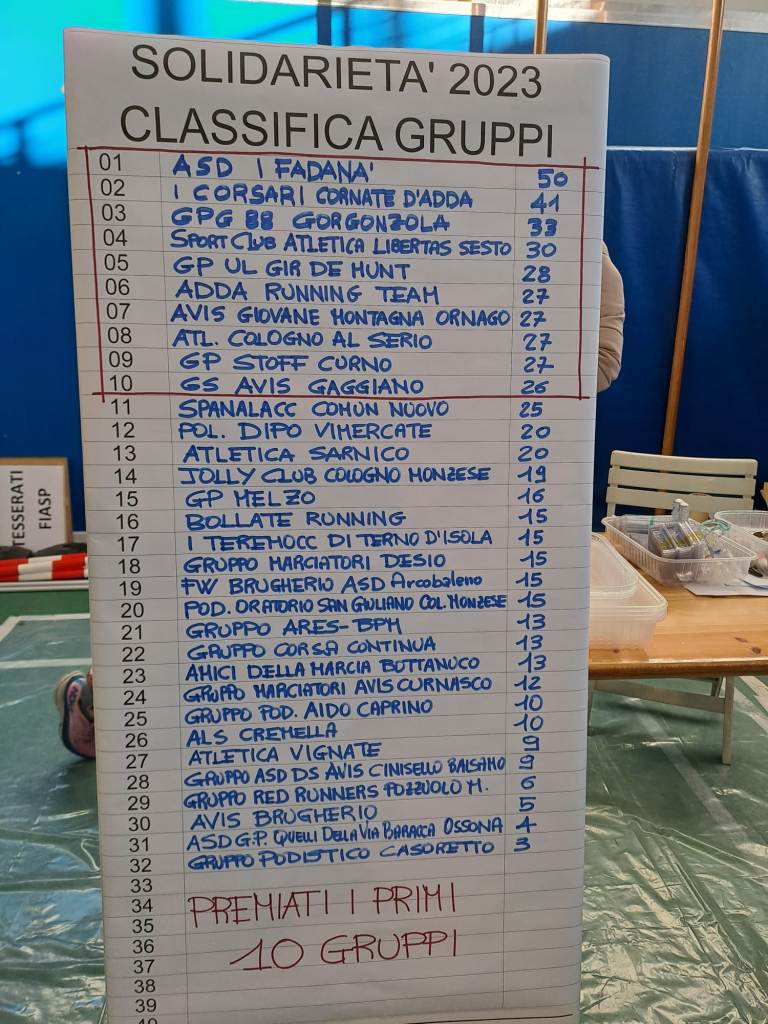 SOLIDARIETA' 2023
CLASSIFICA GRUPPI
01 ASD I FADANA' 50
02 I CORSARI CORNATE D'ADDA 41
03 GPG 88 GORGONZOLA 33
04 SPORT CLUB ATLETICA LIBERTAS SESTO 30
05 GP UL GIR DE MUNT 28
06 ADDA RUNNING TEAM 27
07 AVIS GIOVANE MONTAGNA ORNAGO 27
08 ATL. COLOGNO AL SERIO 27
09 GP STOFF CURNO 27
10 GS AVIS GAGGIANO 26
11 SPANALACC COMUN NUOVO 25
12 POL. DIPO VIMERCATE 20
13 ATLETICA SARNICO 20
14 JOLLY CLUB COLOGNO MONZESE 19
15 GP MELZO 16
16 BOLLATE RUNNING 15
17 I TEREMOCC DI TERNO D'ISOLA 15
18 GRUPPO MARCIATORI DESIO 15
19 FW BRUGHERIO ASD Arcobaleno 15
20 POD. ORATORIO SAN GIULIANO COL. MONZESE 15
21 GRUPPO ARES-BPM 13
22 GRUPPO CORSA CONTINUA 13
23 AMICI DELLA MARCIA BOTTANUCO 13
24 GRUPPO MARCIATORI AVIS CURNASCO 12
25 GRUPPO POD. AIDO CAPRINO 10
26 ALS CREMELLA 10
27 ATLETICA VIGNATE 9
28 GRUPPO ASD DS AVIS CINISELLO BALSAMO 9
29 GRUPPO RED RUNNERS POZZUOLO M. 6
30 AVIS BRUGHERIO 5
31 ASD G.P. QUELLI DELLA VIA BARACCA OSSONA 4
32 GRUPPO PODISTICO CASORETTO 3
33
34 PREMIATI I PRIMI
35
36 10 GRUPPI
37
38
39
40
TESSERATI
FIASP